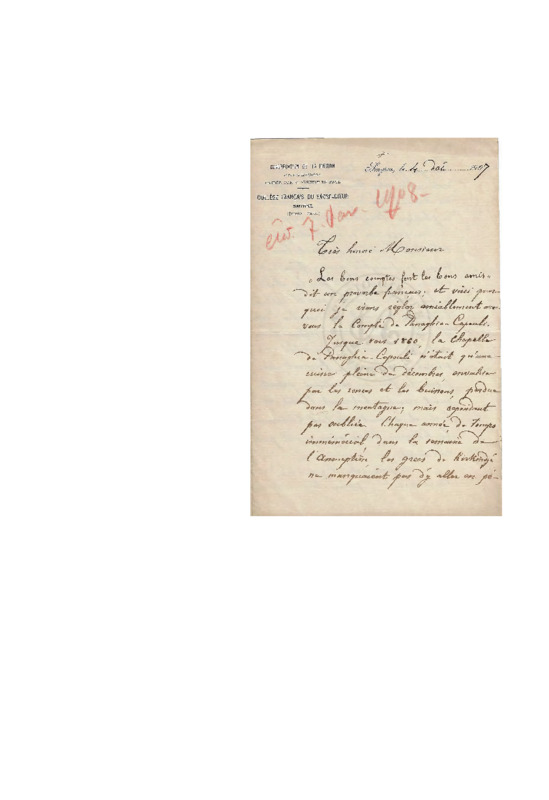 CONGRÉGATION DE LA MISSION
COLLÈGE FRANÇAIS DU SACRÉ-CŒUR
SMYRNE
Smyrne, le 4 Déc. 1907
7. Jan. 1908-
Très honoré Monsieur
« Les bons comptes font les bons amis »
dit un proverbe français; et voici pour
quoi je viens régler amicalement avec
vous le Compte de Panaghia-Capouli.
Jusque vers 1860, la Chapelle
de Panaghia-Capouli n'était qu'une
ruine pleine de décombres, envahie
par les ronces et les buissons, perdue
dans la montagne; mais cependant
pas oubliée. Chaque année de temps
immémorial dans la semaine de
l'Assomption les grecs de Kirkindjé
ne manquaient pas d'y aller en pè-